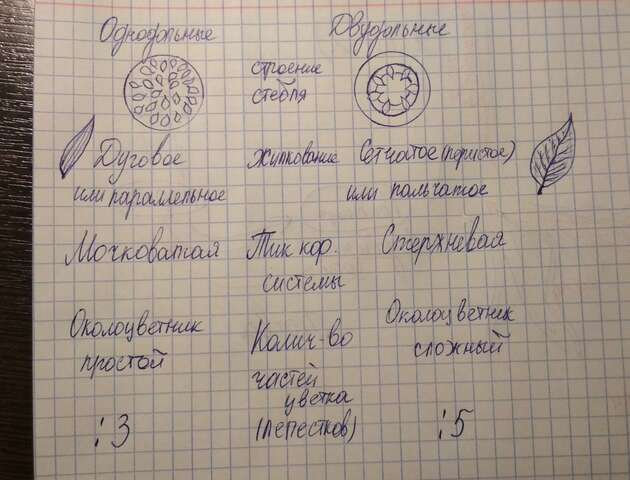 Однодольные Двудольные
строение
стебля
Дуговое жилкование Сетчатое (перистое)
или параллельное или пальчатое
Мочковатая Тип кор. Стержневая
системы
Околоцветник Колич-во Околоцветник
простой частей сложный
цветка
:3 (лепестков) :5